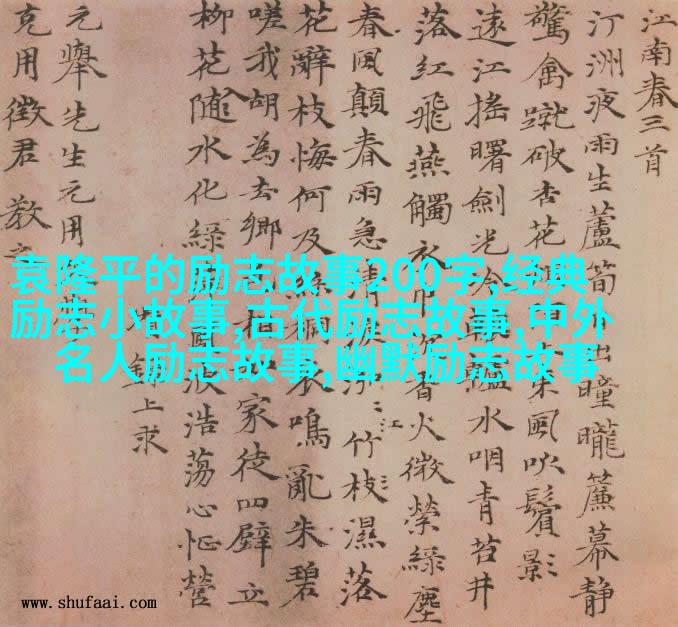 江南春三首
汀洲夜雨生蘆筍出曈曨簾幕靜
驚禽蹴破杏花東風吹鬢影
遠江搖曙劍光冷轤水咽青苔井
落紅飛燕觸衣巾香火微縈綠塵
春風顛春雨急清淚泓江竹枝濕落
花辭枝悔何及絲桐哀鳴亂朱碧
嗟我胡為去鄉相家徒四壁立
柳花隨水化綠風波浩蕩心怔營
錄上求
元舉先生元用
克用徵君教之
袁隆平的励志故事200字,经典
励志小故事,古代励志故事,中外
名人励志故事,幽默励志故事
www.shufaai.com